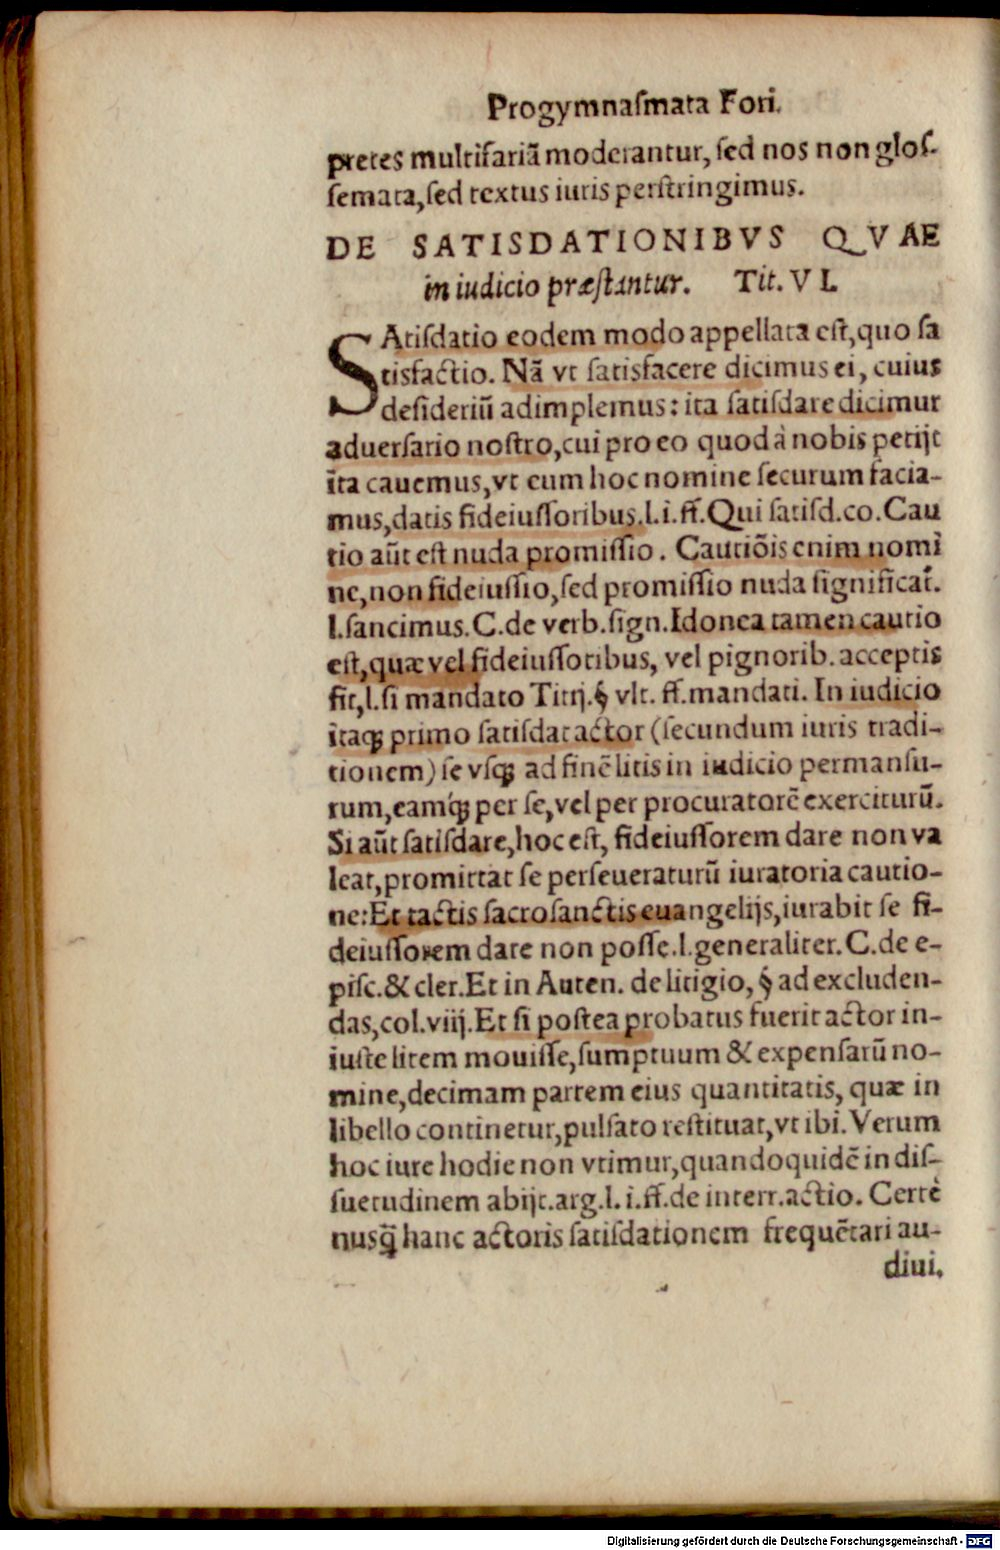 Progymnaſmata Fori.
pretes multifariã moderantur, ſed nos non gloſ-
ſemata, ſed textus iuris perſtringimus.
DE SATISDATIONIBVS QVAE
in iudicio præſtantur. Tit. VI.
SAtiſdatio eodem modo appellata eſt, quo ſa
tisfactio. Nã vt ſatisfacere dicimus ei, cuius
deſideriũ adimplemus: ita ſatiſdare dicimur
aduerſario noſtro, cui pro eo quod à nobis petijt
ita cauemus, vt eum hoc nomine ſecurum facia-
mus, datis fideiuſſoribus. l. i. ff. Qui ſatiſd. co. Cau
tio aũt eſt nuda promiſſio. Cautiõis enim nomi
ne, non fideiuſſio, ſed promiſſio nuda ſignificat̃.
l. ſancimus. C. de verb. ſign. Idonea tamen cautio
eſt, quæ vel fideiuſſoribus, vel pignorib. acceptis
fit, l. ſi mandato Titij. § vlt. ff. mandati. In iudicio
itaq; primo ſatiſdat actor (ſecundum iuris tradi-
tionem) ſe vſq; ad finẽ litis in iudicio permanſu-
rum, eamq́; per ſe, vel per procuratorẽ exerciturũ.
Si aũt ſatiſdare, hoc eſt, fideiuſſorem dare non va
leat, promittat ſe perſeueraturũ iuratoria cautio-
ne: Et tactis ſacroſanctis euangelijs, iurabit ſe fi-
deiuſſorem dare non poſſe. l. generaliter. C. de e-
piſc. & cler. Et in Auten. de litigio, § ad excluden-
das, col. viij. Et ſi poſtea probatus fuerit actor in-
iuſte litem mouiſſe, ſumptuum & expenſarũ no-
mine, decimam partem eius quantitatis, quæ in
libello continetur, pulſato reſtituat, vt ibi. Verum
hoc iure hodie non vtimur, quandoquidẽ in diſ-
ſuetudinem abijt. arg. l. i. ff. de interr. actio. Certè
nusq̃ hanc actoris ſatiſdationem frequẽtari au-
diui.
Digitalisierung gefördert durch die Deutsche Forschungsgemeinschaft - DFG